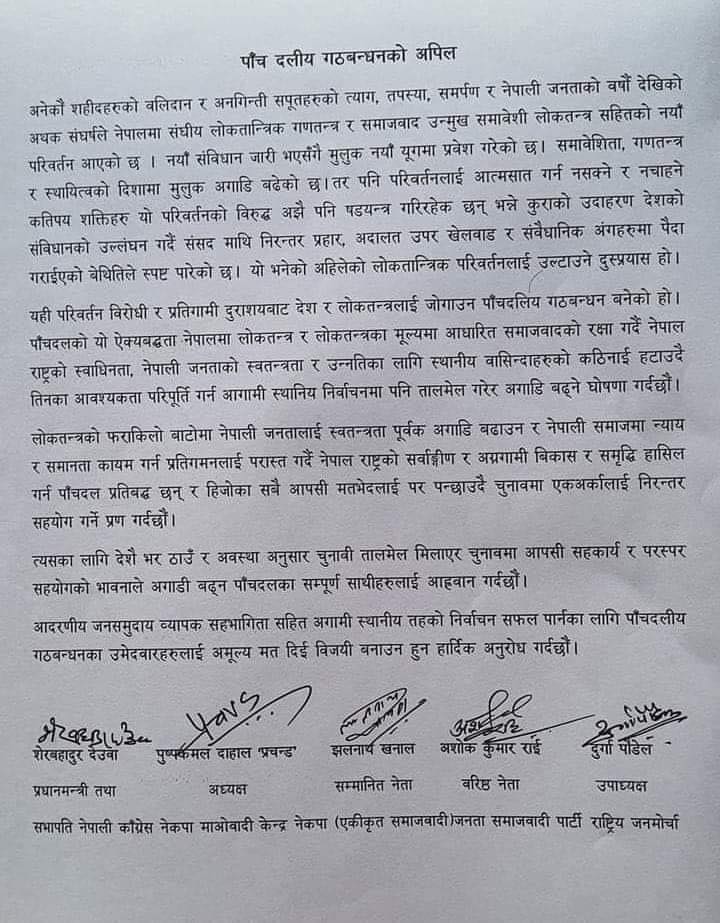 पाँच दलीय गठबन्धनको अपिल
अनेकौ शहीदहरुको वलिदान र अनगिन्ती सपूतहरुको त्याग, तपस्या, समर्पण र नेपाली जनताको वर्षौं देखिको
अथक संघर्षले नेपालमा संघीय लोकतान्त्रिक गणतन्त्र र समाजवाद उन्मुख समावेशी लोकतन्त्र सहितको नयाँ
परिवर्तन आएको छ । नयाँ संविधान जारी भएसँगै मुलुक नयाँ यूगमा प्रवेश गरेको छ। समावेशिता, गणतन्त्र
र स्थायित्वको दिशामा मुलुक अगाडि बढेको छ।तर पनि परिवर्तनलाई आत्मसात गर्न नसक्ने र नचाहने
कतिपय शक्तिहरु यो परिवर्तनको विरुद्ध अझै पनि षडयन्त्र गरिरहेक छन् भन्ने कुराको उदाहरण देशको
संविधानको उल्लंघन गर्दै संसद माथि निरन्तर प्रहार, अदालत उपर खेलवाड र संवैधानिक अंगहरुमा पैदा
गराईएको बेथितिले स्पष्ट पारेको छ। यो भनेको अहिलेको लोकतान्त्रिक परिवर्तनलाई उल्टाउने दुस्प्रयास हो।
यही परिवर्तन विरोधी र प्रतिगामी दुराशयबाट देश र लोकतन्त्रलाई जोगाउन पाँचदलिय गठबन्धन बनेको हो।
पाँचदलको यो ऐक्यबद्धता नेपालमा लोकतन्त्र र लोकतन्त्रका मूल्यमा आधारित समाजवादको रक्षा गर्दै नेपाल
राष्ट्रको स्वाधिनता, नेपाली जनताको स्वतन्त्रता र उन्नतिका लागि स्थानीय वासिन्दाहरुको कठिनाई हटाउदै
तिनका आवश्यकता परिपूर्ति गर्न आगामी स्थानिय निर्वाचनमा पनि तालमेल गरेर अगाडि बढ्ने घोषणा गर्दछौं।
लोकतन्त्रको फराकिलो बाटोमा नेपाली जनतालाई स्वतन्त्रता पूर्वक अगाडि बढाउन र नेपाली समाजमा न्याय
र समानता कायम गर्न प्रतिगमनलाई परास्त गर्दै नेपाल राष्ट्रको सर्वाङ्गीण र अग्रगामी बिकास र समृद्धि हासिल
गर्न पाँचदल प्रतिबद्ध छन् र हिजोका सबै आपसी मतभेदलाई पर पन्छाउदै चुनावमा एकअर्कालाई निरन्तर
सहयोग गर्ने प्रण गर्दछौं।
त्यसका लागि देशै भर ठाउँ र अवस्था अनुसार चुनावी तालमेल मिलाएर चुनावमा आपसी सहकार्य र परस्पर
सहयोगको भावनाले अगाडी बढ्न पाँचदलका सम्पूर्ण साथीहरुलाई आह्रवान गर्दछौं।
आदरणीय जनसमुदाय व्यापक सहभागिता सहित अगामी स्थानीय तहको निर्वाचन सफल पार्नका लागि पाँचदलीय
गठबन्धनका उमेदवारहरुलाई अमूल्य मत दिई विजयी बनाउन हुन हार्दिक अनुरोध गर्दछौं।
शेरबहादुर देउवा पुष्पकमल दाहाल 'प्रचन्ड' झलनाथ खनाल अशोक कुमार राई दुर्गा पौडेल
प्रधानमन्त्री तथा अध्यक्ष सम्मानित नेता बरिष्ठ नेता उपाध्यक्ष
सभापति नेपाली काँग्रेस नेकपा माओवादी केन्द्र नेकपा (एकीकृत समाजवादी)जनता समाजवादी पार्टी राष्ट्रिय जनमोर्चा